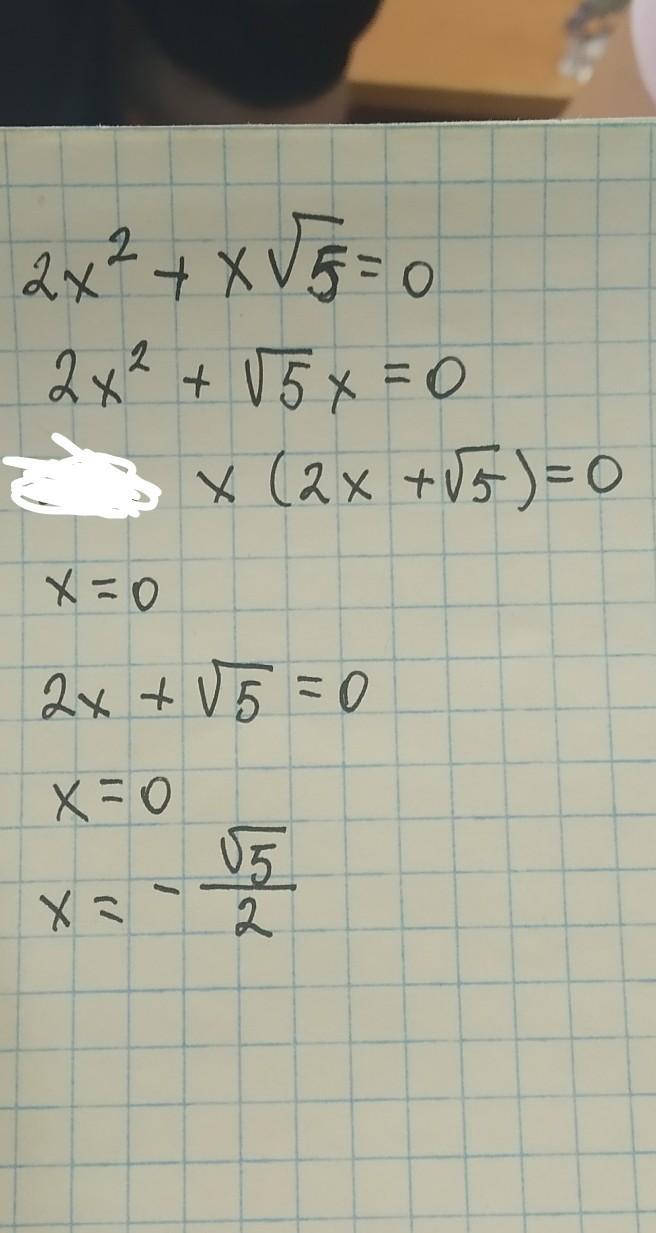 2x² + x√5 = 0
2x² + √5x = 0
x (2x + √5) = 0
x = 0
2x + √5 = 0
x = 0
x = - √5/2